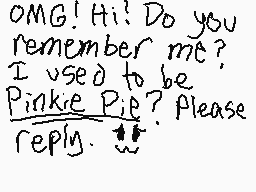 OMG! Hi! Do you
remember me?
I used to be
Pinkie Pie? Please
reply.